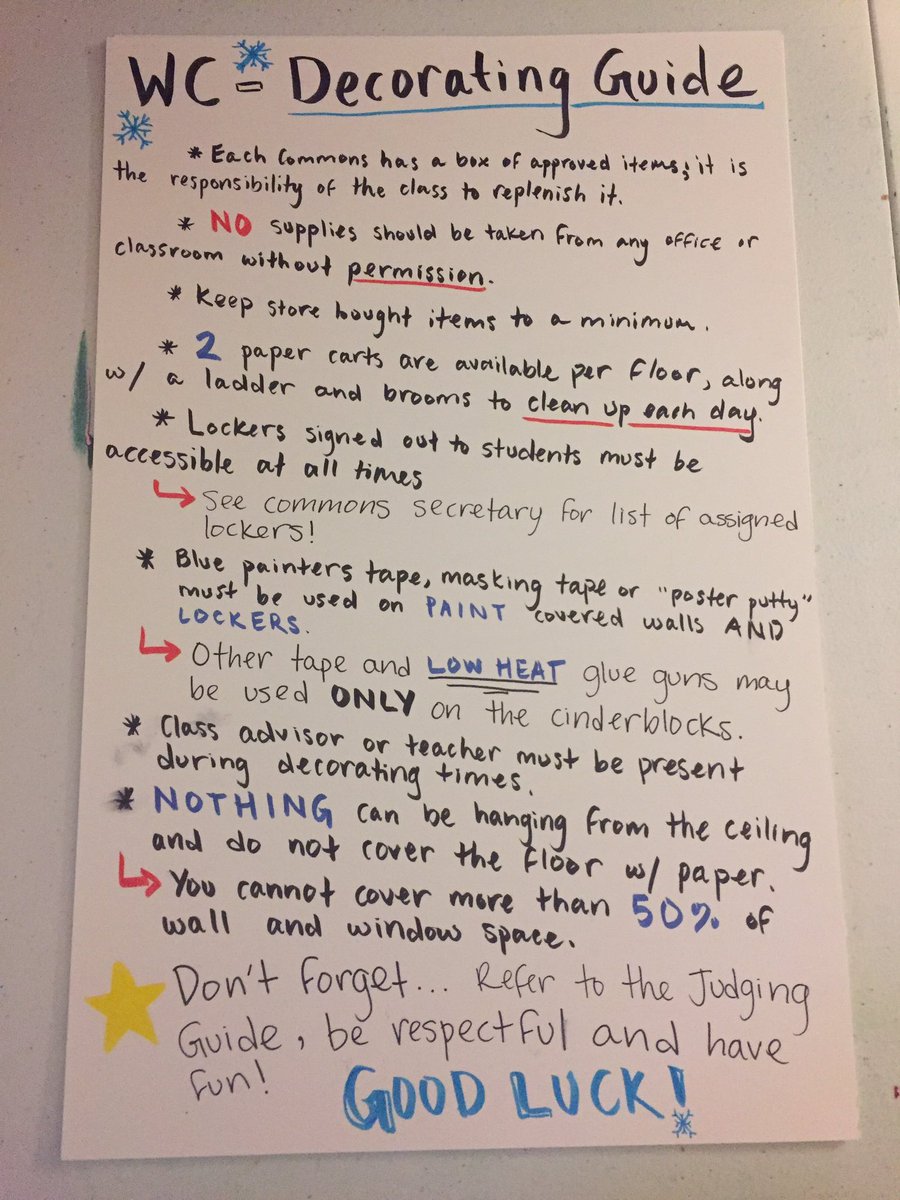 WC - Decorating Guide
* Each Commons has a box of approved items; it is
the responsibility of the class to replenish it.
* NO supplies should be taken from any office or
classroom without permission.
* Keep store bought items to a minimum.
* 2 paper carts are available per floor, along
w/ a ladder and brooms to clean up each day.
* Lockers signed out to students must be
accessible at all times
See commons secretary for list of assigned
lockers!
* Blue painters tape, masking tape or "poster putty"
must be used on PAINT covered walls AND
LOCKERS.
Other tape and LOW HEAT glue guns may
be used ONLY on the cinderblocks.
* Class advisor or teacher must be present
during decorating times.
* NOTHING can be hanging from the ceiling
and do not cover the floor w/ paper.
You cannot cover more than 50% of
wall and window space.
Don't forget... Refer to the Judging
Guide, be respectful and have
fun!
GOOD LUCK!